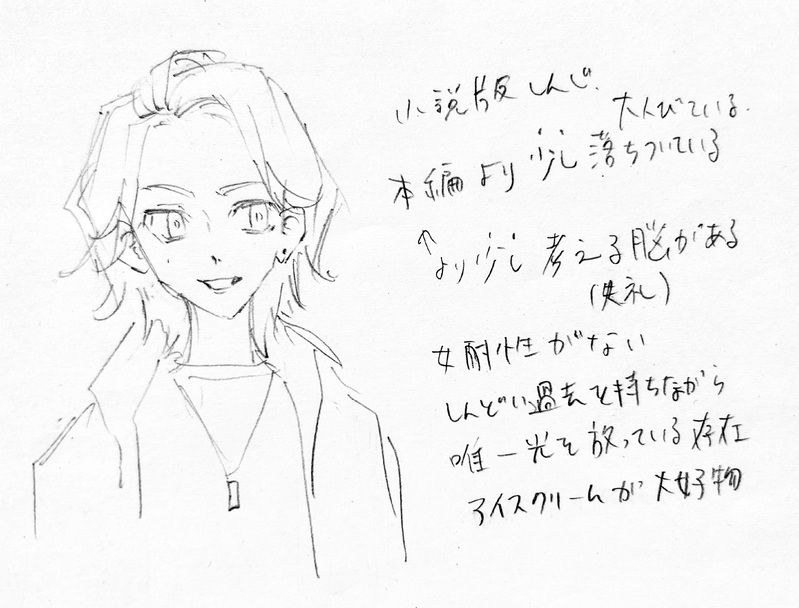 小説版しんじ.
大人びている.
本編より少し落ちついている
↑より少し考える脳がある
(失礼)
女耐性がない
しんどい過去を持ちながら
唯一光を放っている存在
アイスクリームが大好物